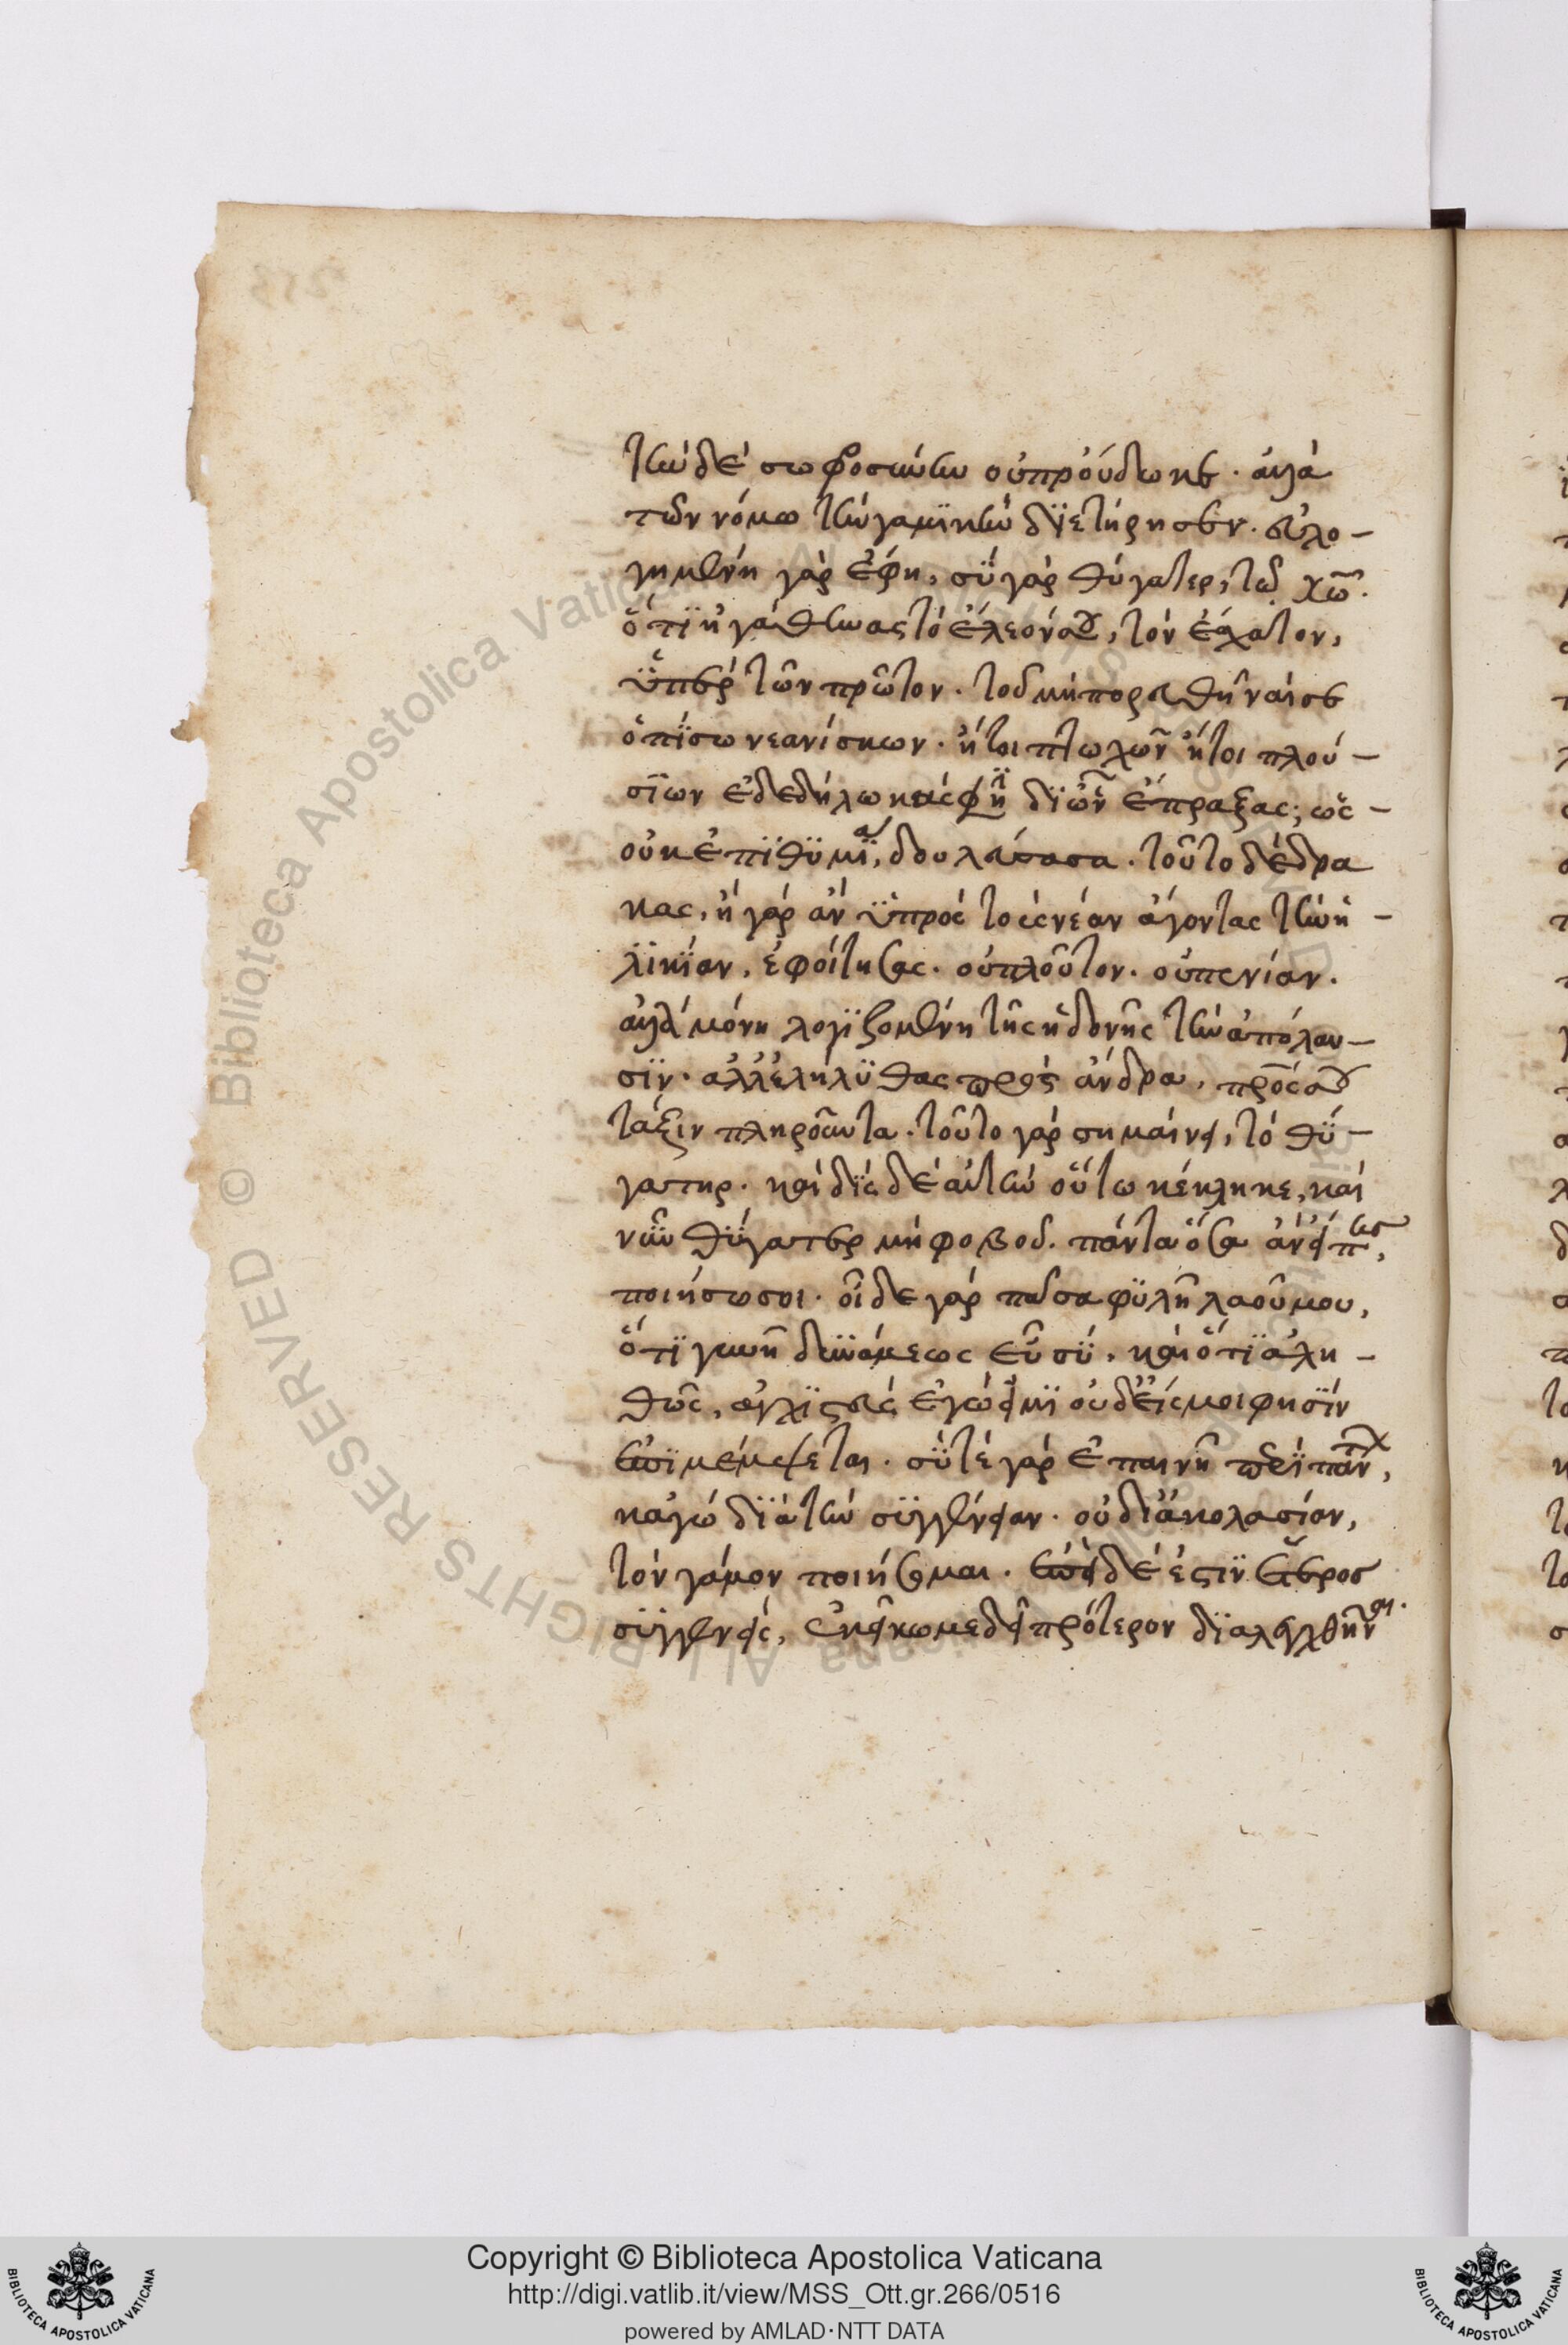 τὴν δὲ σωφροσύνην οὐ προύδωκε. ἀλλὰ
τῶν νόμω τὴν γαμϊκὴν δϊετήρησεν. εὐλο-
γημένη γὰρ ἔφη, σῢ γὰρ θύγατερ, τῶ χω.
ὅτϊ ἠγάθυνας τὸ ἔλεόν σου, τὸν ἔσχατον,
ϋπὲρ τὸν πρῶτον. τοῦ μὴ πορευθῆναί σε
ὀπΐσω νεανίσκων. ἤτοι πτωχῶν ἤτοι πλου-
σΐων ἐδεδήλωκας φη δϊ ὧν ἔπραξας; ὡς -
οὐκ ἐπϊθϋμΐα, δουλεύσασα. τοῦτο δέδρα
κας, ἢ γὰρ ἂν ϋ πρὸς τοὺς νέαν ἄγοντας τὴν ἡ -
λϊκΐαν, ἐφοίτησας. οὐ πλοῦτον. οὐ πενίαν.
ἀλλὰ μόνη λογϊζομένη τῆς ἡδονῆς τὴν ἀπόλαυ-
σϊν. ἀλλ' ἐλήλϋθας πρὸς ἄνδρα, πρὸς σου
τάξιν πληροῦντα. τοῦτο γὰρ σημαίνει, τὸ θϋ-
γατηρ. καὶ δϊς δὲ αὐτὴν οὕτω κέκληκε, καὶ
νῦν θϋγατερ μὴ φοβοῦ. πάντα ὅσα ἂν εἴπης,
ποιήσω σοι. οἶδε γὰρ πᾶσα φϋλὴ λαοῦ μου,
ὅτϊ γυνὴ δυνάμεως εἶ σΰ, καὶ ὅτϊ ἀλη -
θῶς, ἀγχϊστεὺς ἐγώ εἰμϊ οὐδείς μοι φησΐν
ἐπϊμέμψεται. σΰ τε γὰρ ἐπαινῆ παρϊ πάντ,
καγὼ δϊὰ τὴν σϋγγένειαν. οὐ δϊ ἀκολασίαν,
τὸν γάμον ποιήσομαι. ἐπεὶ δὲ ἔστϊν ἕτερος
σϋγγενεὺς, ἐκείνω με δεῖ πρότερον δϊαλεχθῆναι.
Copyright © Biblioteca Apostolica Vaticana
http://digi.vatlib.it/view/MSS_Ott.gr.266/0516
powered by AMLAD·NTT DATA